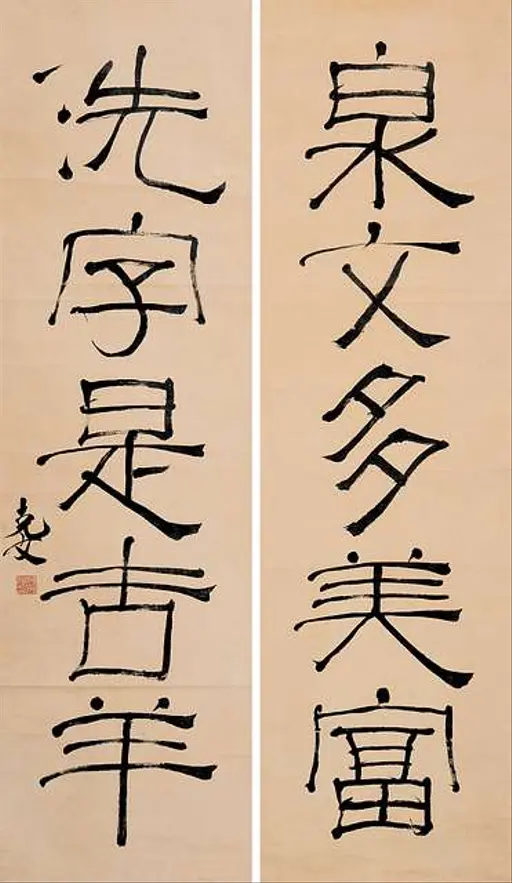 泉文多美富
洗字是吉羊
克文